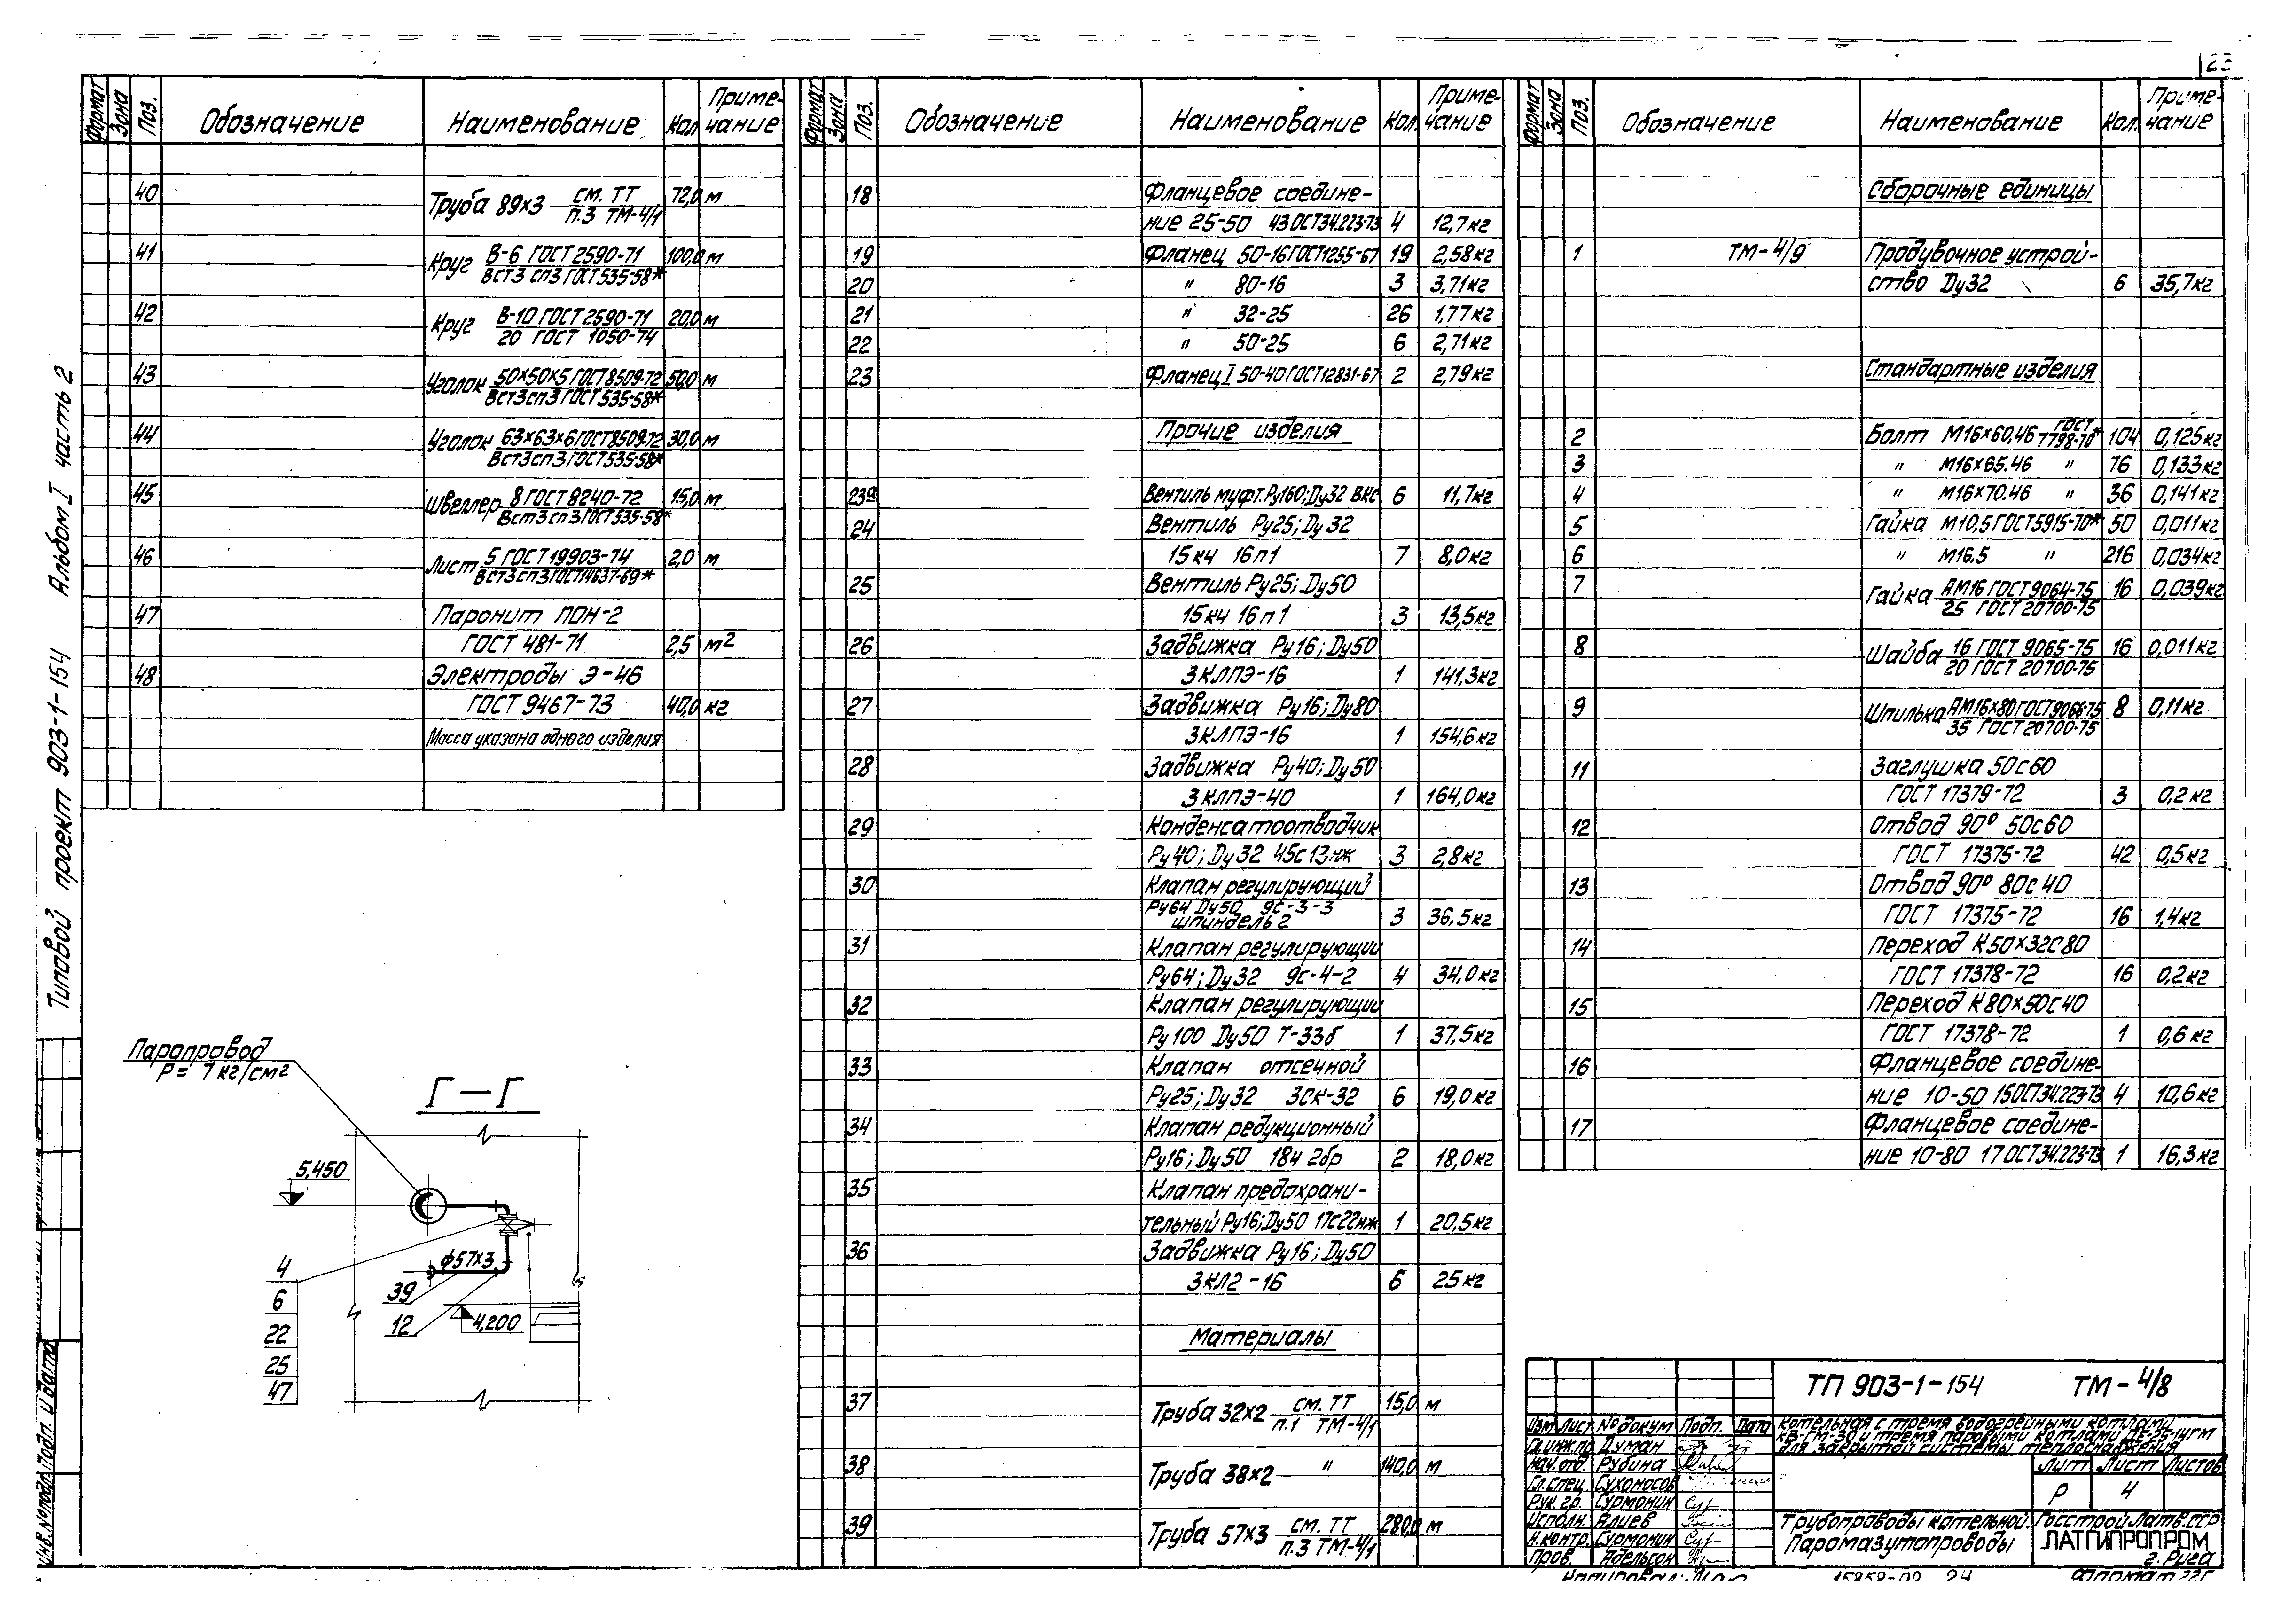 23
Формат Зона Поз. Обозначение Наименование Кол. Примечание
40 Труба 89×3 см. ТТ п.3 ТМ-4/1 72,0 м
41 Круг В-6 ГОСТ 2590-71 100,0 м
Вст3 сп3 ГОСТ 535-58*
42 Круг В-10 ГОСТ 2590-71 20,0 м
20 ГОСТ 1050-74
43 Уголок 50×50×5 ГОСТ 8509-72 50,0 м
Вст3сп3 ГОСТ 535-58*
44 Уголок 63×63×6 ГОСТ 8509-72 30,0 м
Вст3сп3 ГОСТ 535-58*
45 Швеллер 8 ГОСТ 8240-72 15,0 м
Вст3сп3 ГОСТ 535-58*
46 Лист 5 ГОСТ 19903-74 2,0 м
Вст3сп3 ГОСТ 14637-69*
47 Паронит ПОН-2
ГОСТ 481-71 2,5 м2
48 Электроды Э-46
ГОСТ 9467-73 40,0 кг
Масса указана одного изделия
Формат Зона Поз. Обозначение Наименование Кол. Примечание
18 Фланцевое соедине-
ние 25-50 43 ОСТ34.223-73 4 12,7кг
19 Фланец 50-16 ГОСТ1255-67 19 2,58кг
20 " 80-16 3 3,71кг
21 " 32-25 26 1,77кг
22 " 50-25 6 2,71кг
23 Фланец I 50-40 ГОСТ12831-67 2 2,79кг
Прочие изделия
23а Вентиль муфт.Ру160;Dу32 ВКС 6 11,7кг
24 Вентиль Ру25; Dу32
15кч 16п1 7 8,0кг
25 Вентиль Ру25; Dу50
15кч 16п1 3 13,5кг
26 Задвижка Ру16; Dу50
ЗКЛПЭ-16 1 141,3кг
27 Задвижка Ру16; Dу80
ЗКЛПЭ-16 1 154,6кг
28 Задвижка Ру40; Dу50
ЗКЛПЭ-40 1 164,0кг
29 Конденсатоотводчик
Ру40; Dу32 45с13нж 3 2,8кг
30 Клапан регулирующий
Ру64 Dу50 9с-3-3
шпиндель 2 3 36,5кг
31 Клапан регулирующий
Ру64; Dу32 9с-4-2 4 34,0кг
32 Клапан регулирующий
Ру100 Dу50 Т-33б 1 37,5кг
33 Клапан отсечной
Ру25; Dу32 ЗСК-32 6 19,0кг
34 Клапан редукционный
Ру16; Dу50 18ч 2бр 2 18,0кг
35 Клапан предохрани-
тельный Ру16;Dу50 17с22нж 1 20,5кг
36 Задвижка Ру16; Dу50
ЗКЛ2-16 6 25кг
Материалы
37 Труба 32×2 см. ТТ п.1 ТМ-4/1 15,0 м
38 Труба 38×2 " 140,0 м
39 Труба 57×3 см. ТТ п.3 ТМ-4/1 280,0 м
Формат Зона Поз. Обозначение Наименование Кол. Примечание
Сборочные единицы
1 ТМ-4/9 Продувочное устрой-
ство Dу32 6 35,7кг
Стандартные изделия
2 Болт М16×60.46 ГОСТ 7798-70* 104 0,125кг
3 " М16×65.46 " 76 0,133кг
4 " М16×70.46 " 36 0,141кг
5 Гайка М10,5 ГОСТ5915-70* 50 0,011кг
6 " М16.5 " 216 0,034кг
7 Гайка АМ16 ГОСТ 9064-75 16 0,039кг
25 ГОСТ 20700-75
8 Шайба 16 ГОСТ 9065-75 16 0,011кг
20 ГОСТ 20700-75
9 Шпилька АМ16×80 ГОСТ9066-75 8 0,11кг
35 ГОСТ 20700-75
11 Заглушка 50с60
ГОСТ 17379-72 3 0,2кг
12 Отвод 90° 50с60
ГОСТ 17375-72 42 0,5кг
13 Отвод 90° 80с40
ГОСТ 17375-72 16 1,4кг
14 Переход К50×32с80
ГОСТ 17378-72 16 0,2кг
15 Переход К80×50с40
ГОСТ 17378-72 1 0,6кг
16 Фланцевое соедине-
ние 10-50 15 ОСТ34.223-73 4 10,6кг
17 Фланцевое соедине-
ние 10-80 17 ОСТ34.223-73 1 16,3кг
Типовой проект 903-1-154 Альбом I часть 2
Паропровод
Р= 7 кг/см2
Г-Г
5,450
ф57×3
4
6
22
25
47
39
12
4,200
Инв. №подл. Подп. и дата
ТП 903-1-154 ТМ-4/8
Изм Лист №докум Подп. Дата
Гл.инж.пр. Думан
Нач.отд. Рубина
Гл.спец. Сухоносов
Рук.гр. Сурмонин
Исполн. Алиев
Н.контр. Сурмонин
Пров. Адельсон
Котельная с тремя водогрейными котлами
КВ-ГМ-30 и тремя паровыми котлами ДЕ-25-14ГМ
для закрытой системы теплоснабжения
Лит Лист Листов
Р 4
Трубопроводы котельной.
Паромазутопроводы
Госстрой Латв.ССР
ЛАТГИПРОПРОМ
г. Рига
Копировал:
15858-02 24
Формат 22Г